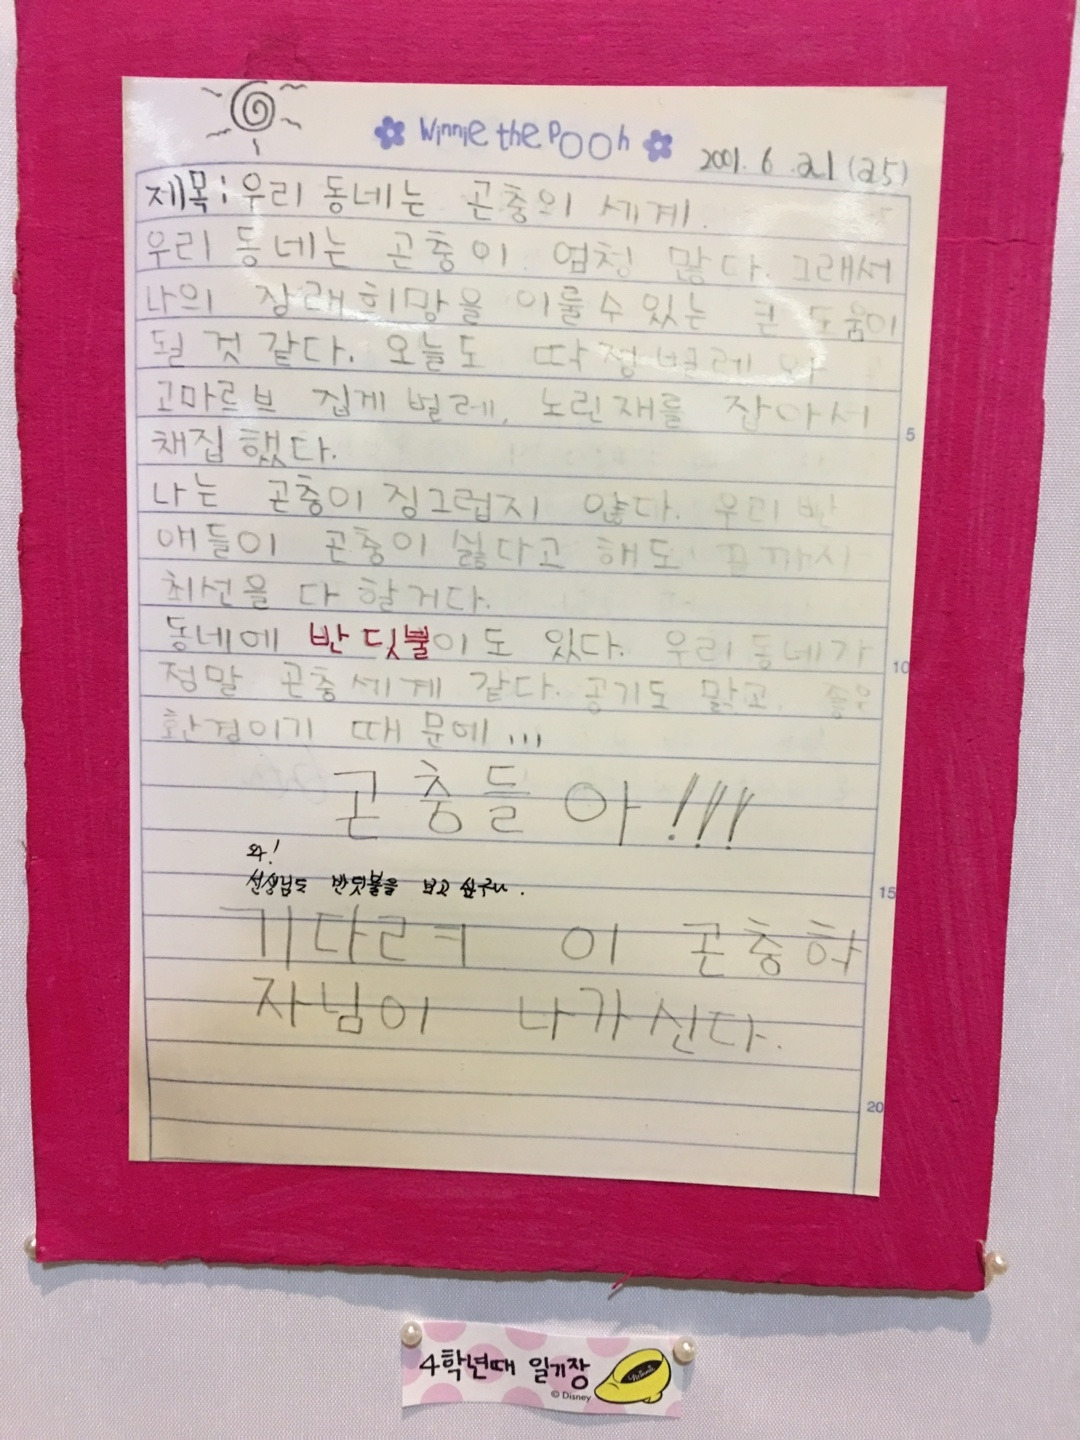 Winnie the Pooh
2001. 6 .21 (25)
제목: 우리 동네는 곤충의 세계.
우리 동네는 곤충이 엄청 많다. 그래서
나의 장래희망을 이룰수 있는 큰 도움이
될 것 같다. 오늘도 딱정벌레 와
고마르브 집게 벌레, 노린재를 잡아서
채집 했다.
나는 곤충이 징그럽지 않다. 우리 반
애들이 곤충이 싫다고 해도 끝까지
최선을 다 할거다.
동네에 반딧불이도 있다. 우리 동네가
정말 곤충세계 같다. 공기도 맑고, 좋은
환경이기 때문에 ...
곤충들아!!!
와!
선생님도 반딧불을 보고 싶구나.
기다려 이 곤충학
자님이 나가신다.
5
10
15
20
4학년때 일기장
© Disney